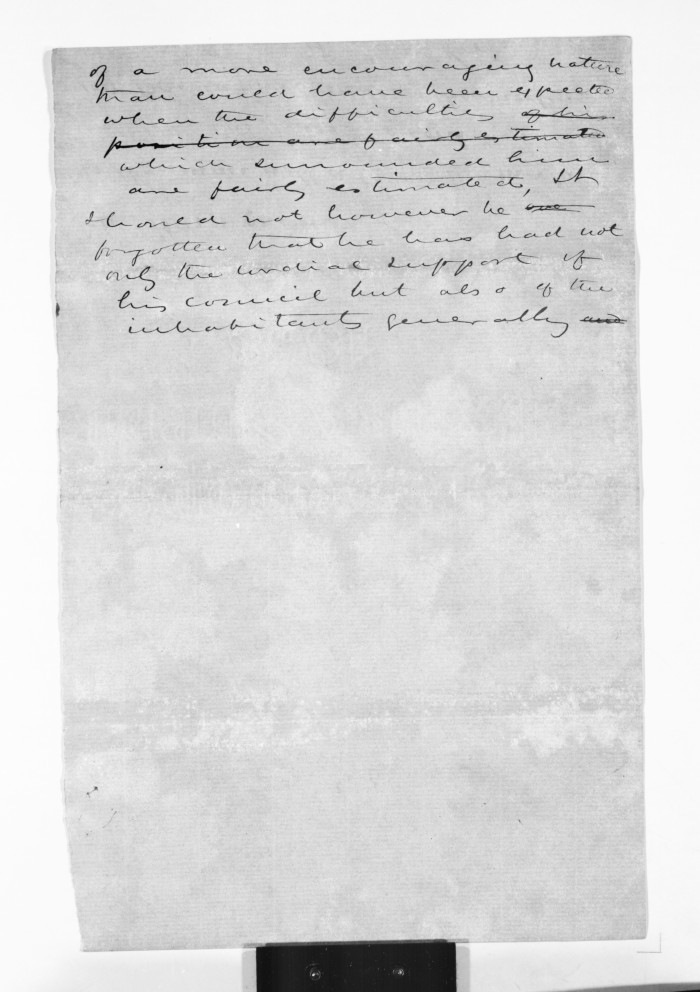 of a more encouraging nature
than could have been expected
when the difficulties of his
position are fairly estimated
which surrounded him
are fairly estimated, It
should not however be
forgotten that he has had not
only the cordial support of
his council but also of the
inhabitants generally and